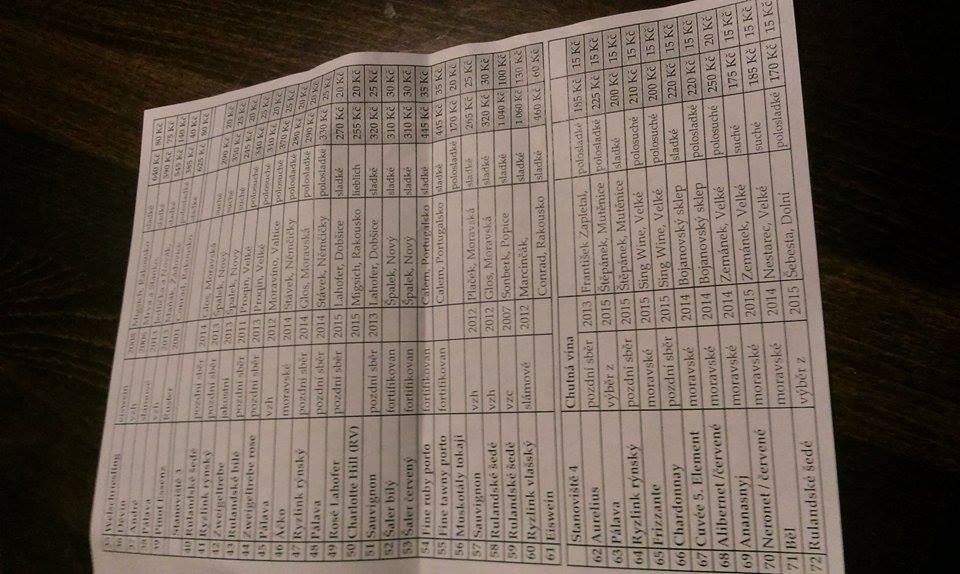 35 Welschriesling eiswein
36 Děvín vzh
37 slámové
38 Pálava vzh
39 Pinot Essenz
Stanoviště 3
40 Rulandské šedé pozdní sběr 2014 Glos, Moravská
41 Ryzlink rýnský pozdní sběr 2013 Špalek, Nový suché
42 Zweigeltrebe jakostní 2013 Špalek, Nový suché
43 Rulandské bílé pozdní sběr 2011 Proqin, Velké suché 245 Kč
44 Zweigeltrebe rose pozdní sběr 2013 Proqin, Velké polosuché 340 Kč
45 Pálava vzh 2012 Moravíno, Valtice polosuché 310 Kč 20 Kč
46 Áčko moravské 2014 Stávek, Němčičky polosuché 370 Kč 25 Kč
47 Ryzlink rýnský pozdní sběr 2014 Glos, Moravská polosladké 280 Kč 20 Kč
48 Pálava pozdní sběr 2014 Stávek, Němčičky polosladké 370 Kč 25 Kč
49 Rosé Lahofer pozdní sběr 2015 Lahofer, Dobšice sladké 270 Kč 20 Kč
50 Charlotte Hill (RV) 2015 Migsich, Rakousko lieblich 255 Kč 20 Kč
51 Sauvignon pozdní sběr 2013 Lahofer, Dobšice sladké 320 Kč 25 Kč
52 Šaler bílý fortifikovan Špalek, Nový sladké 310 Kč 30 Kč
53 Šaler červený fortifikovan Špalek, Nový sladké 310 Kč 30 Kč
54 Fine ruby porto fortifikovan Calem, Portugalsko sladké 445 Kč 35 Kč
55 Fine tawny porto fortifikovan Calem, Portugalsko sladké 445 Kč 35 Kč
56 Muskotály tokaji polosladké 170 Kč 20 Kč
57 Sauvignon vzh 2012 Plaček, Moravská sladké 265 Kč 25 Kč
58 Rulandské šedé vzh 2012 Glos, Moravská sladké 320 Kč 30 Kč
59 Rulandské šedé vzc 2007 Sonberk, Popuce sladké 1 040 Kč 100 Kč
60 Ryzlink vlašský slámové 2012 Marcinčák, sladké 1 060 Kč 130 Kč
61 Eiswein Conrad, Rakousko 460 Kč 60 Kč
Stanoviště 4 Chutná vína
62 Aurelius pozdní sběr 2013 František Zapletal, polosladké 185 Kč 15 Kč
63 Pálava výběr z 2015 Štěpánek, Mutěnice polosladké 225 Kč 15 Kč
64 Ryzlink rýnský pozdní sběr 2015 Štěpánek, Mutěnice sladké 200 Kč 15 Kč
65 Frizzante moravské 2015 Sing Wine, Velké polosuché 210 Kč 15 Kč
66 Chardonnay pozdní sběr 2015 Sing Wine, Velké polosuché 200 Kč 15 Kč
67 Cuvée 5. Element moravské 2014 Bojanovský sklep sladké 220 Kč 15 Kč
68 Alibernet /červené moravské 2014 Bojanovský sklep polosladké 220 Kč 15 Kč
69 Ananasnyj moravské 2014 Zemánek, Velké polosuché 250 Kč 20 Kč
70 Neronet / červené moravské 2015 Zemánek, Velké suché 175 Kč 15 Kč
71 Běl moravské 2014 Nestarec, Velké suché 185 Kč 15 Kč
72 Rulandské šedé výběr z 2015 Šebesta, Dolní polosladké 170 Kč 15 Kč